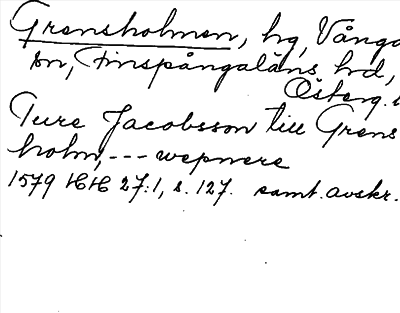 Grensholmen, hg, Vånga
sn, Finspångaläns hd,
Österg.
Ture Jacobsson till Grens
holm, --- wepnere
1579 HH 27:1, s. 127. samt. avskr.